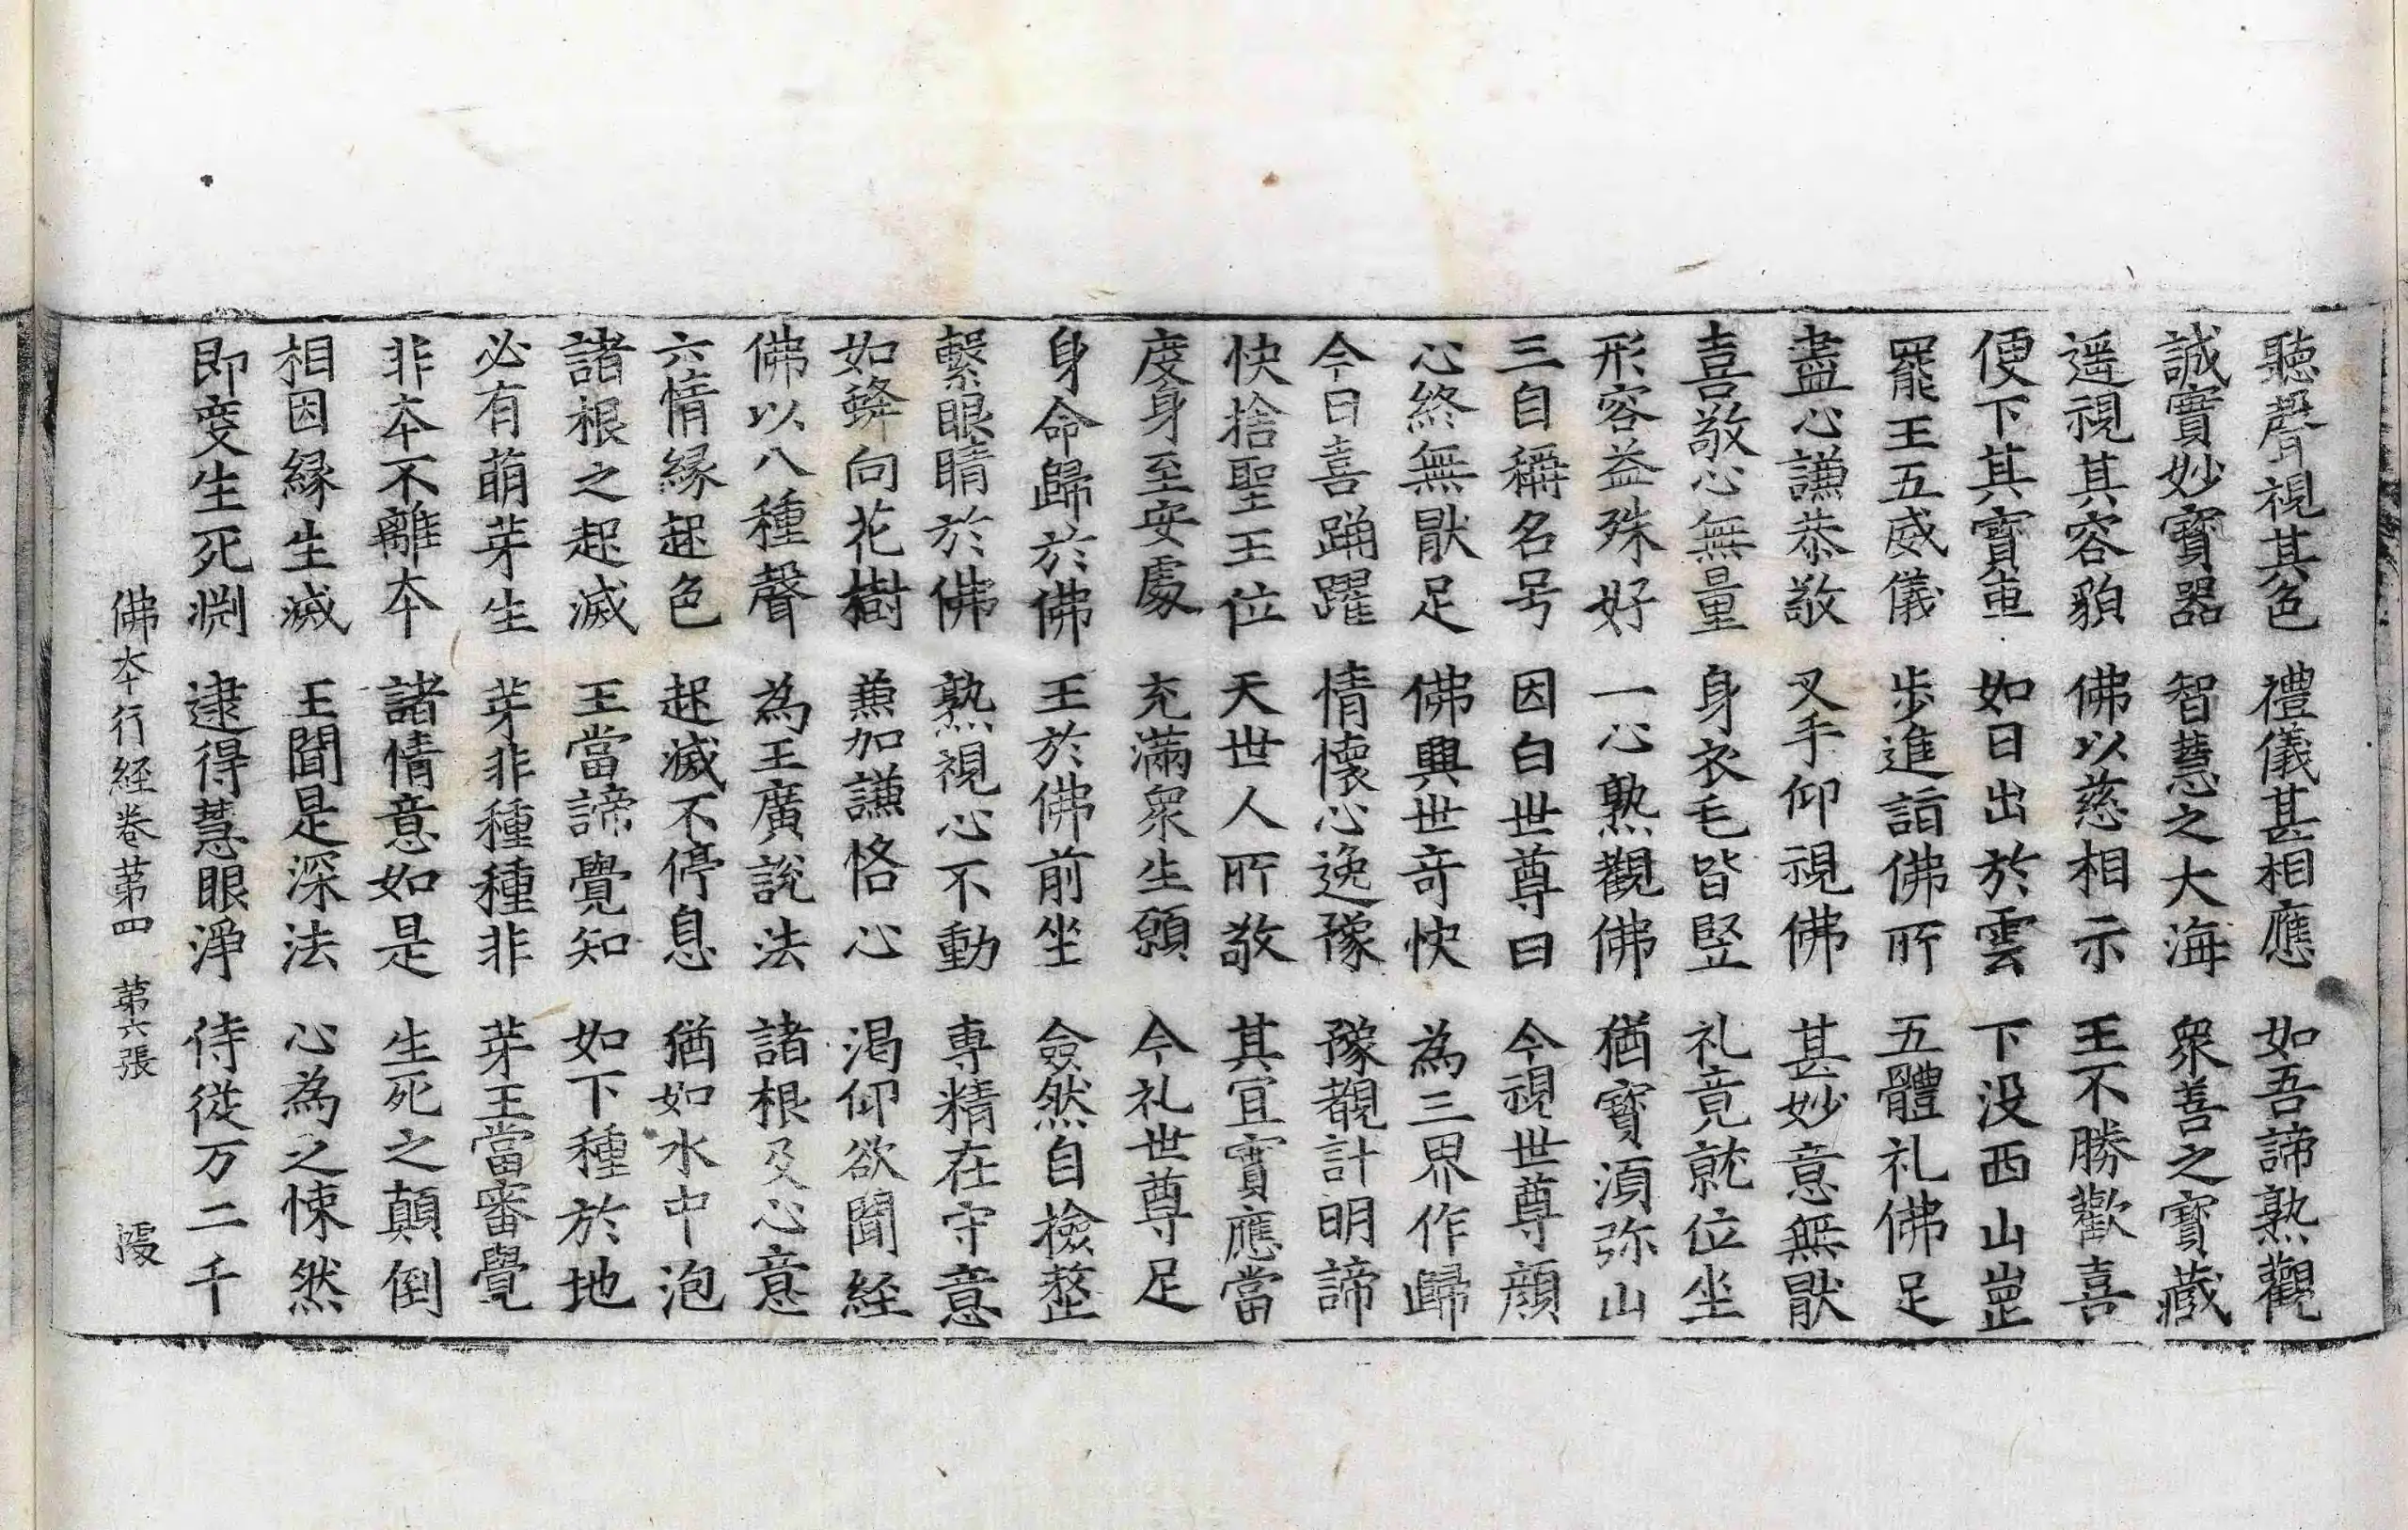 聽聲視其色 禮儀甚相應 如吾諦熟觀
誠實妙寶器 智慧之大海 衆善之寶藏
遥視其容貌 佛以慈相示 王不勝歡喜
便下其寶車 如日出於雲 下没西山崗
罷王五威儀 步進詣佛所 五體礼佛足
盡心謙恭敬 叉手仰視佛 甚妙意無厭
喜敬心無量 身衣毛皆竪 礼竟就位坐
形容益殊好 一心熟觀佛 猶寶須弥山
三自稱名号 因白世尊曰 今視世尊顔
心終無猒足 佛興世奇快 為三界作歸
今日喜踊躍 情懷心逸豫 豫覩計明諦
快捨聖王位 天世人所敬 其宜實應當
度身至安處 充滿衆生願 今礼世尊足
身命歸於佛 王於佛前坐 僉然自檢整
繫眼睛於佛 熟視心不動 專精在守意
如蜂向花樹 兼加謙恪心 渇仰欲聞經
佛以八種聲 為王廣說法 諸根及心意
六情縁起色 起滅不停息 猶如水中泡
諸根之起滅 王當諦覺知 如下種於地
必有萌芽生 芽非種種非 芽王當審覺
非本不離本 諸情意如是 生死之顛倒
相因縁生滅 王聞是深法 心為之悚然
即度生死淵 逮得慧眼淨 侍從万二千
佛本行經卷第四 第六張